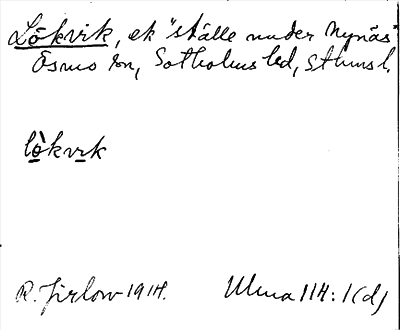 Lökvik, ek "ställe under Nynäs"
Ösmo sn, Sotholms hd, Sthms l.
lò̱kvi̱k
R. Jirlow 1914. Ulma 114:1(d)